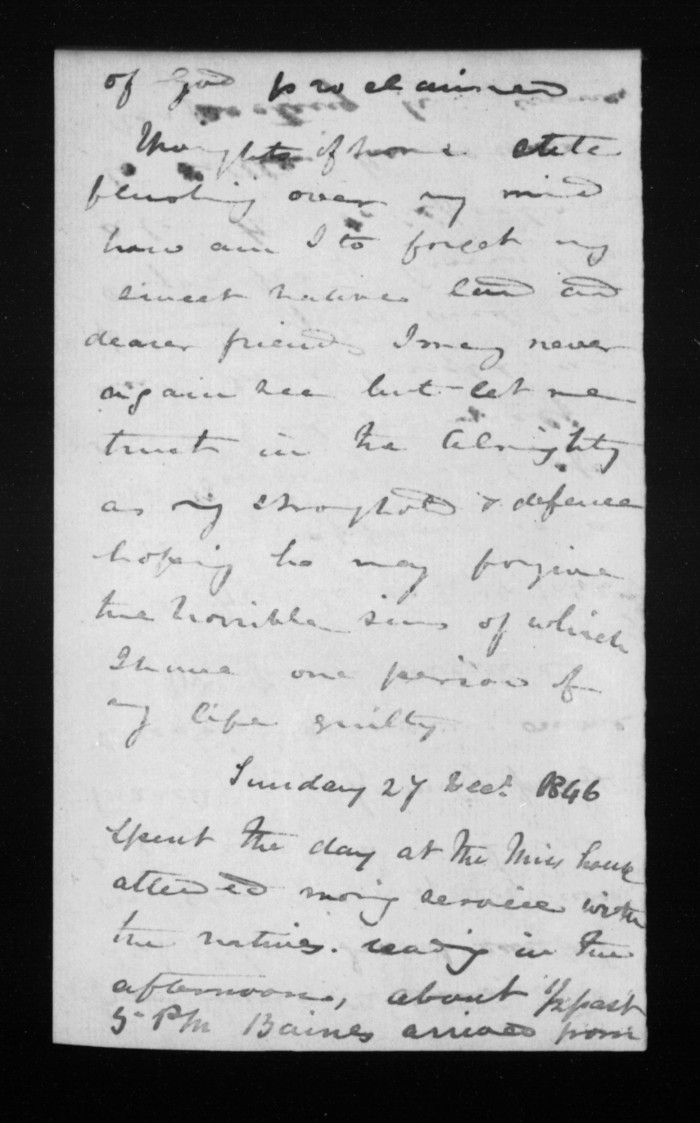 of God proclaimed
Thoughts of home
flushing over my mind
how am I to forget my
sweet native land and
dearer friends I may never
again see but let me
trust in the Almighty
as my stronghold & defence
hoping he may forgive
the horrible sins of which
I have one period of
my life guilty.
Sunday 27 Decr. 1846
Spent the day at the Miss house
attended morng service with
the natives. reading in the
afternoon, about 1/2 past
5 PM Baines arrived from